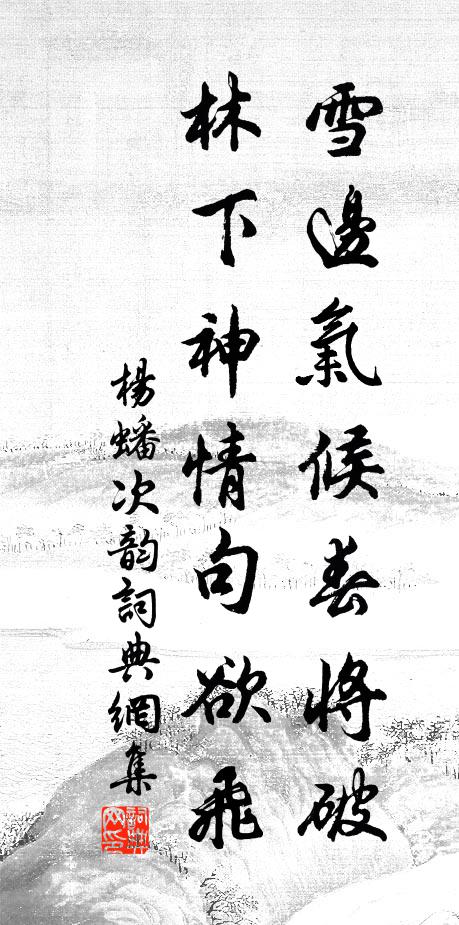 雪邊氣候春將破
林下神情句欲飛
楊蟠次韵詞典網集